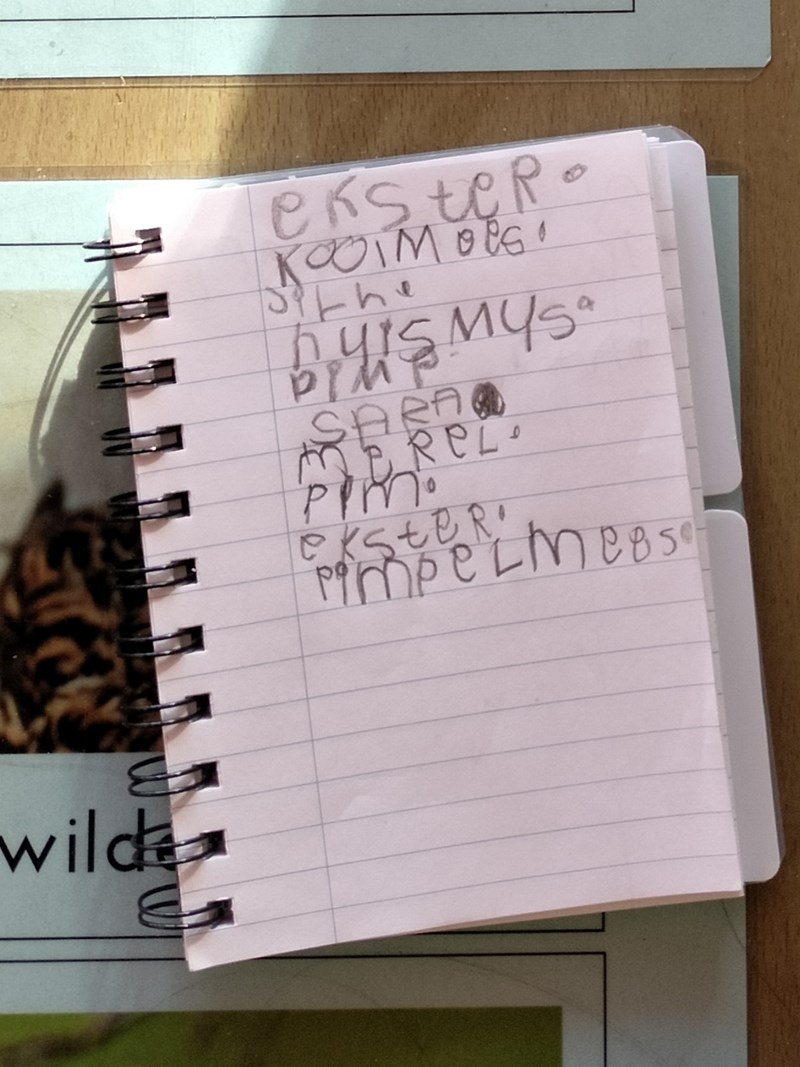 eKSteR.
KOOIMees.
huisMus.
PIMP
SARA
meReL.
PIM.
eKSteR.
PIMPeLmees.
wilde